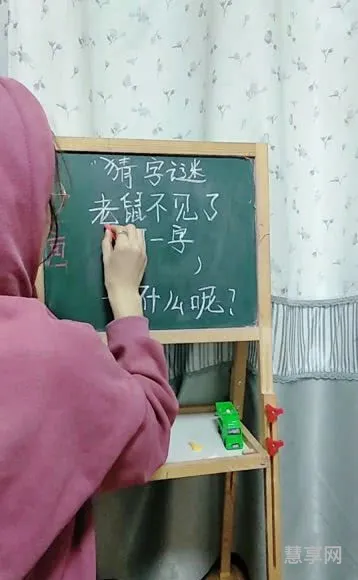 猜字谜
老鼠不见了
一字
什么呢?
慧享网